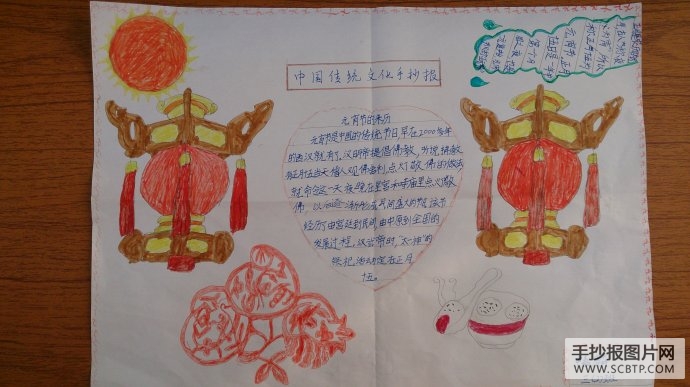 中国传统文化手抄报
元宵节的来历
元宵节是中国的传统节日,早在2000多年
的西汉就有了,汉明帝提倡佛教,听说佛教
有正月十五日僧人观佛舍利,点灯敬佛的做法,
就命令这一天夜晚在皇宫和寺庙里点灯敬
佛,以后逐渐形成民间盛大的节日,该节
经历了由宫廷到民间,由中原到全国的
发展过程,汉武帝时,“太一神”的
祭祀活动定在正月
十五。
元宵节
正月
手抄报图片网
WWW.SCBTP.COM